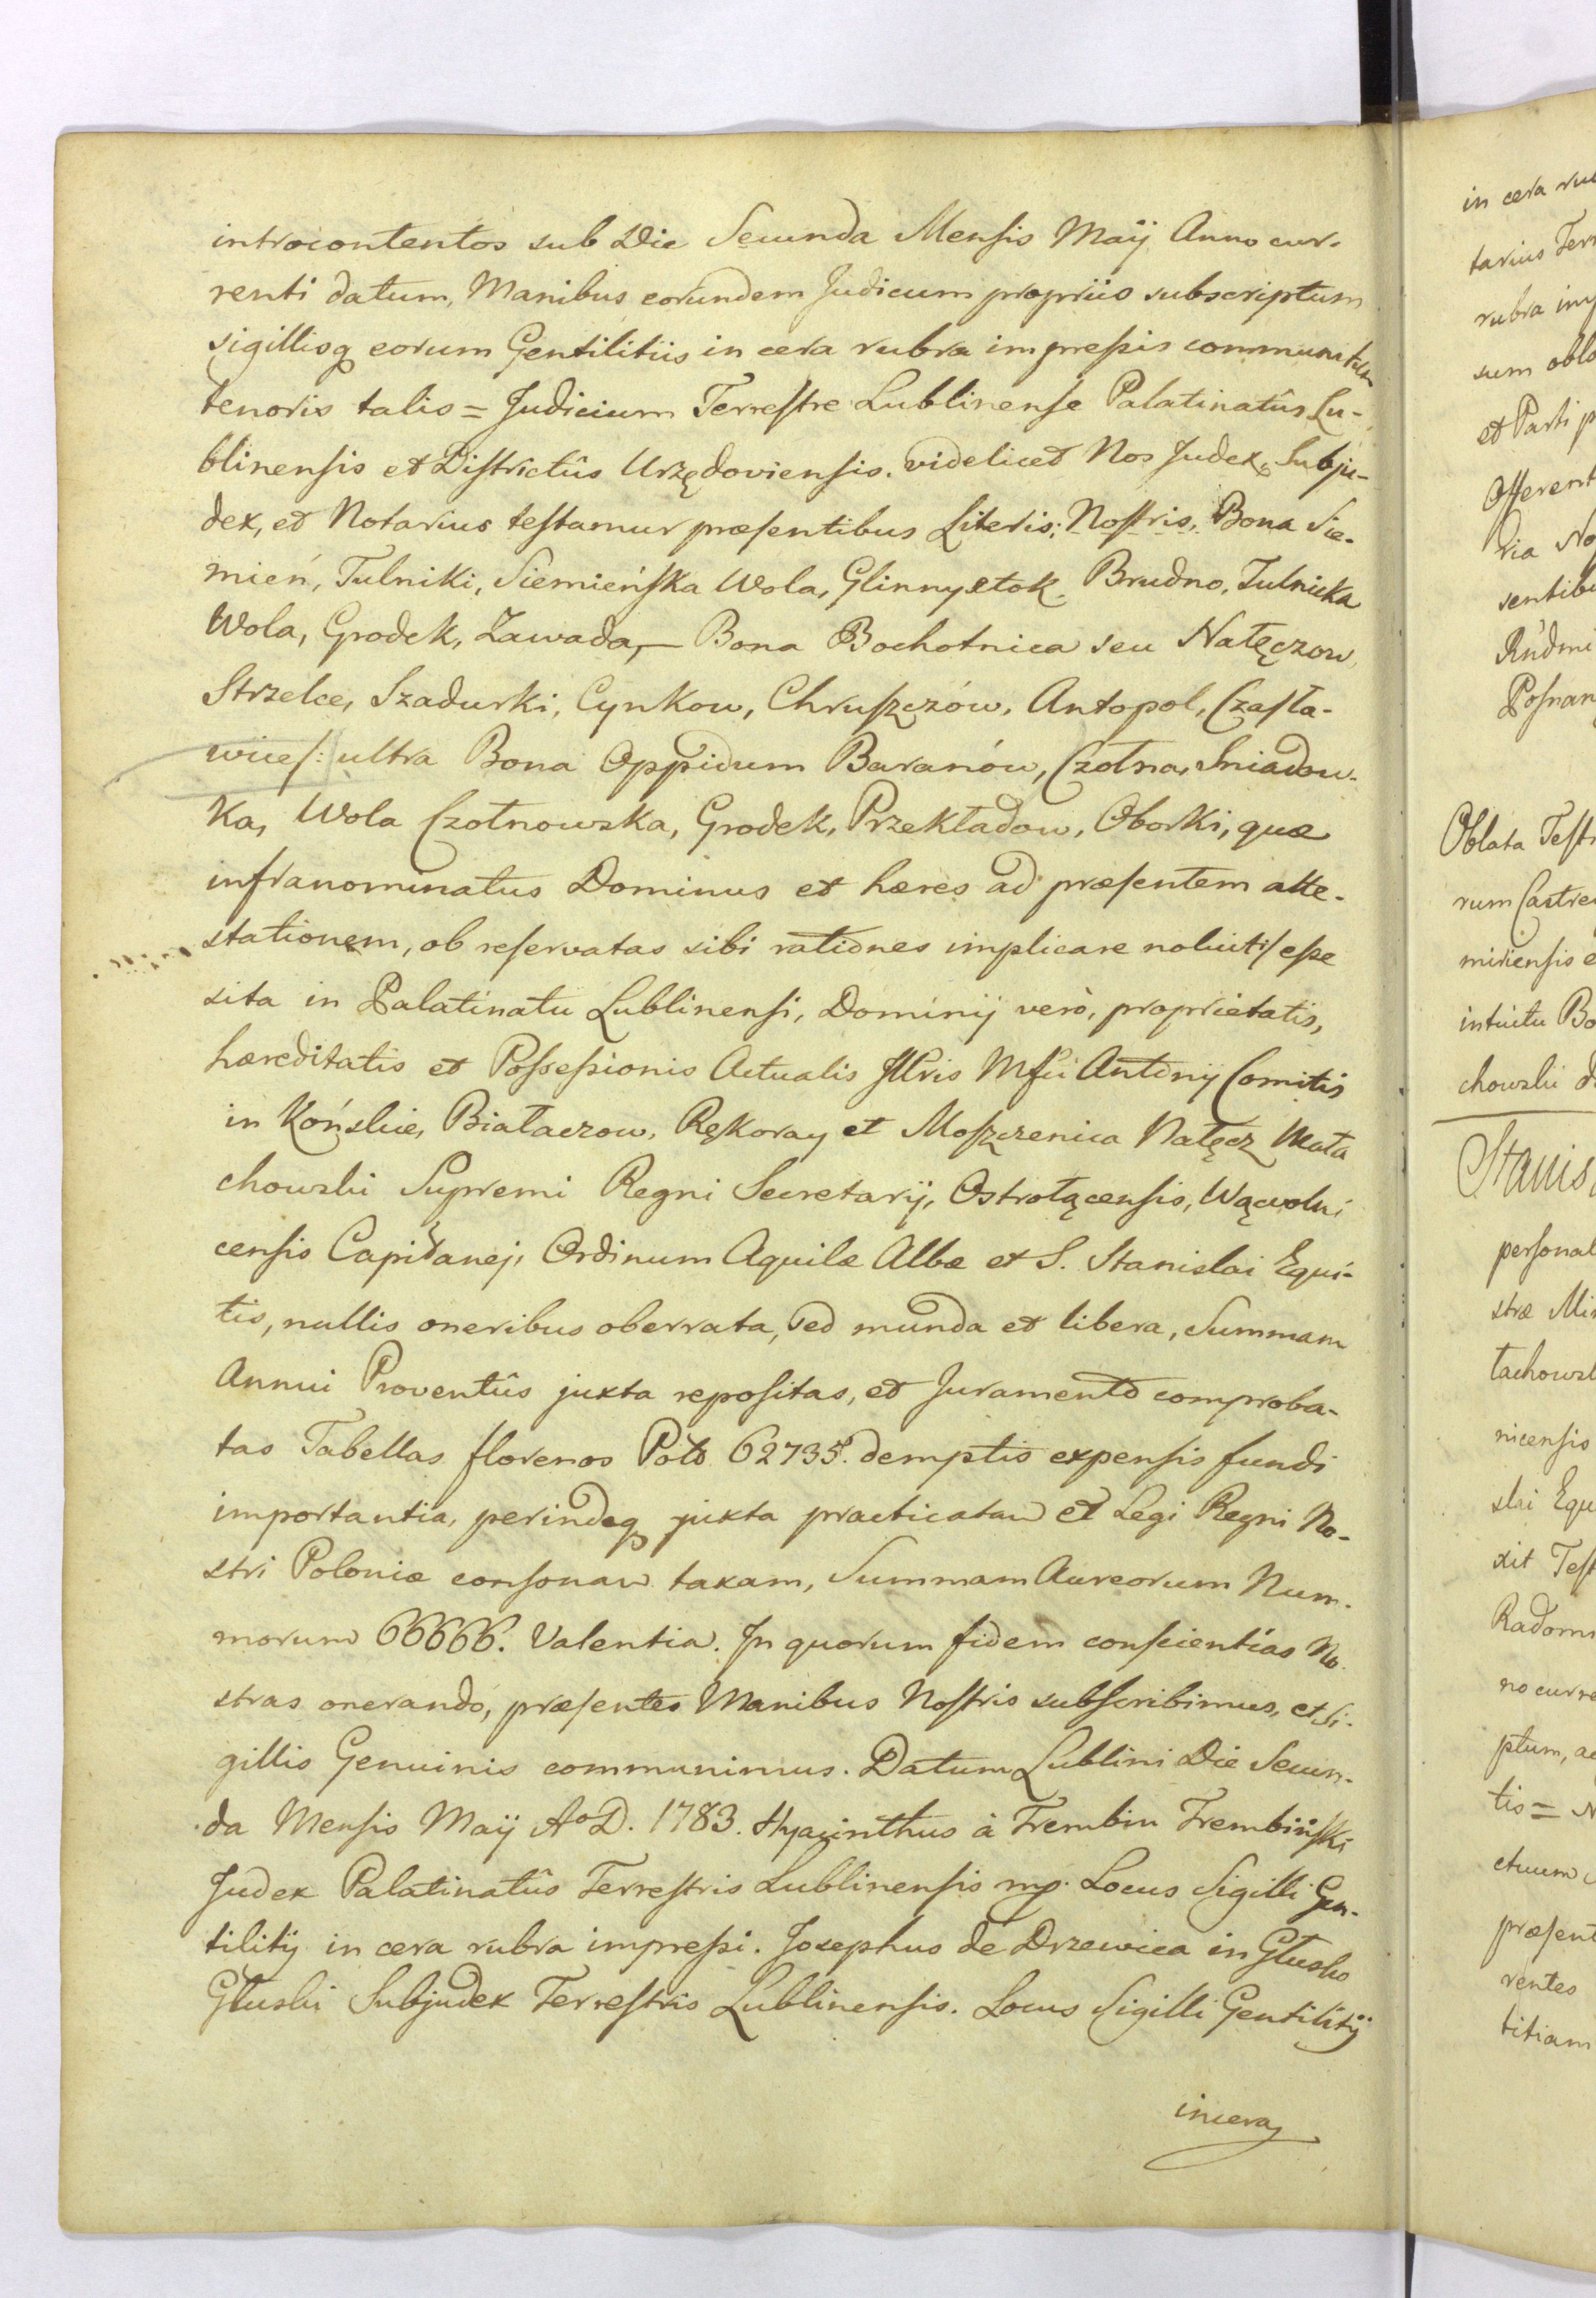 introcontentos sub Die Secunda Mensis Maÿ Anno cur-
renti datum, Manibus eorundem Judicum propriis subscriptum
sigillisq eorum Gentilitiis in cera rubra impressis communitum
tenoris talis = Judicium Terrestre Lublinense Palatinatûs Lu-
blinensis et Districtûs Urzędoviensis. videlicet Nos Judex, Subju-
dex, et Notarius testamur præsentibus Literis Nostris, Bona Sie-
mień, Tulniki, Siemieńska Wola, Glinny stok, Brudno, Tulnicka
Wola, Grodek, Zawada, — Bona Bochotnica seu Nałęczow
Strzelce, Szadurki, Cynkow, Chruszczów, Antopol, Czasła-
wice /: ultra Bona Oppidum Baranów, Czołna, Sniadow-
ka, Wola Czołnowska, Grodek, Przekładow, Oborki, quæ
infranominatus Dominus et hæres ad præsentem atte-
stationem, ob reservatas sibi rationes implicare noluit :/ esse
sita in Palatinatu Lublinensi, Dominij verò, proprietatis,
hæreditatis et Possessionis Actualis Jllris Mfci Antonij Comitis
in Końskie, Białaczow, Rękoray et Moszczenica Nałęcz Mała
chowski Supremi Regni Secretarij, Ostrołęcensis, Wąwolni
censis Capitanej, Ordinum Aquilæ Albæ et S. Stanislai Equi-
tis, nullis oneribus oberrata, sed munda et libera, Summam
Annui Proventûs juxta repositas, et Juramento comproba-
tas Tabellas florenos Pol 62735. demptis expensis fundi
importantia, perindeq juxta practicatam et Legi Regni No-
stri Poloniæ consonam taxam, Summam Aureorum Num-
morum 66666. Valentia. Jn quorum fidem conscientias No
stras onerando, præsentes Manibus Nostris subscribimus, et Si-
gillis Genuinis communimus. Datum Lublini Die Secun-
da Mensis Maÿ Ao D. 1783. Hyacinthus à Trembin Trembiński
Judex Palatinatûs Terrestris Lublinensis mp. Locus Sigilli Gen-
tilitij in cera rubra impressi. Josephus de Drzewica in Głusko
Głuski Subjudex Terrestris Lublinensis. Locus Sigilli Gentilitij
in cera
in cera
tarius
rubra
sum
et Parti
Offerent
ria
Oblata
rum
miriensis
intuitu
chowski
Stanis
personal
stræ
tachowsk
nicensis
slai
xit
Radom
no curre
ptum,
tis =
ctuum
præsent
rentes
titiam